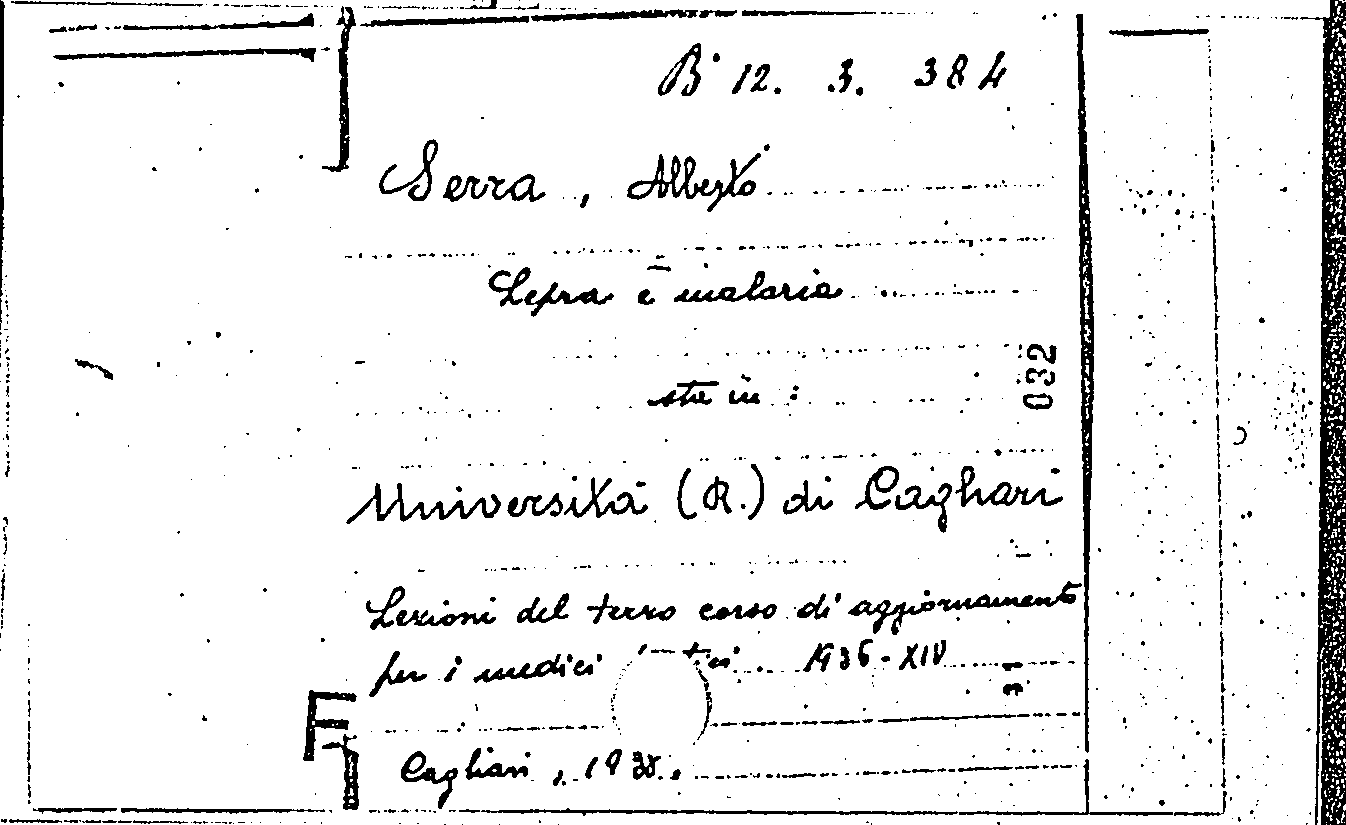 B° 12. 3. 384
Serra, Alberto
Lepra e malaria
sta in:
032
Università (R.) di Cagliari
Lezioni del terzo corso di aggiornamento
per i medici 1936-XIV
Cagliari, 1938.